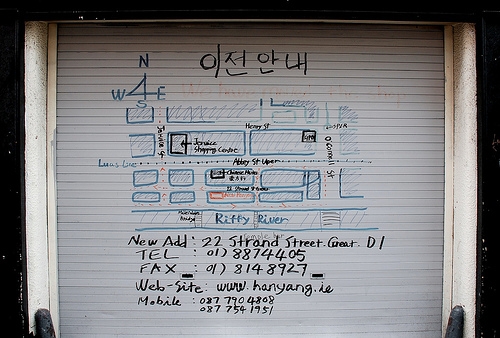 이전안내
N
W E
S
Henry St
Jervis St
Jervice
Shopping Centre
O'Connell St
Luas Line
Abbey St Uper
Chinese Medi
22 Strand St Great
Riffy River
New Add : 22 Strand Street. Great. D1
TEL : 01) 8874405
FAX : 01) 8148927
Web-Site: www.hanyang.ie
Mobile : 087 790 4808
087 754 1951